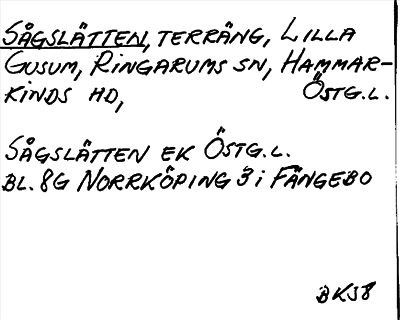 SÅGSLÄTTEN, TERRÄNG, LILLA
GUSUM, RINGARUMS SN, HAMMAR-
KINDS HD, ÖSTG.L.
SÅGSLÄTTEN EK ÖSTG.L.
BL. 8G NORRKÖPING 3i FÄNGEBO
BKS8